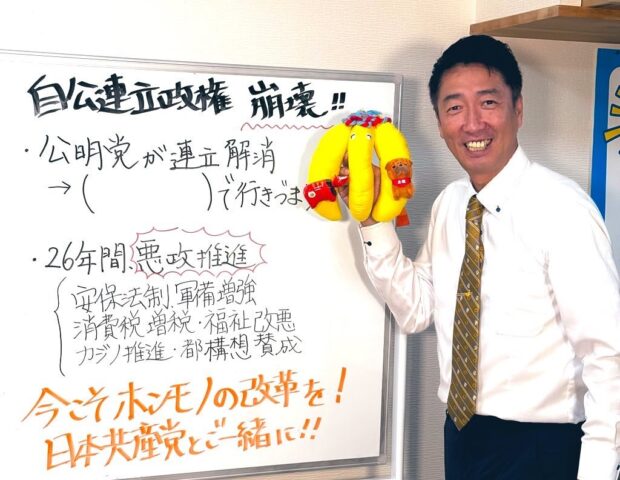 自公連立政権 崩壊!!
・公明党が連立解消
→(　　　　)で行きづま
・26年間、悪政推進
安保法制、軍備増強
消費税増税・福祉改悪
カジノ推進・都構想賛成
今こそホンモノの改革を!
日本共産党とご一緒に!!